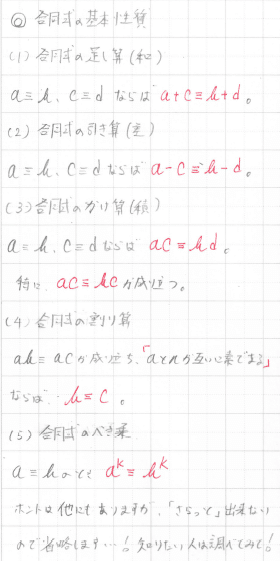 ◎ 合同式の基本性質
(1) 合同式の足し算(和)
a≡b、c≡d ならば a+c≡b+d。
(2) 合同式の引き算(差)
a≡b、c≡d ならば a-c≡b-d。
(3) 合同式のかけ算(積)
a≡b、c≡d ならば ac≡bd。
特に ac≡bc が成り立つ。
(4) 合同式の割り算
ab≡ac が成り立ち、「aとnが互いに素である」
ならば、b≡c。
(5) 合同式のべき乗
a≡b のとき a^k≡b^k
ホントは他にもありますが、「さらっと」出来ない
ので省略します…！知りたい人は調べてみて！